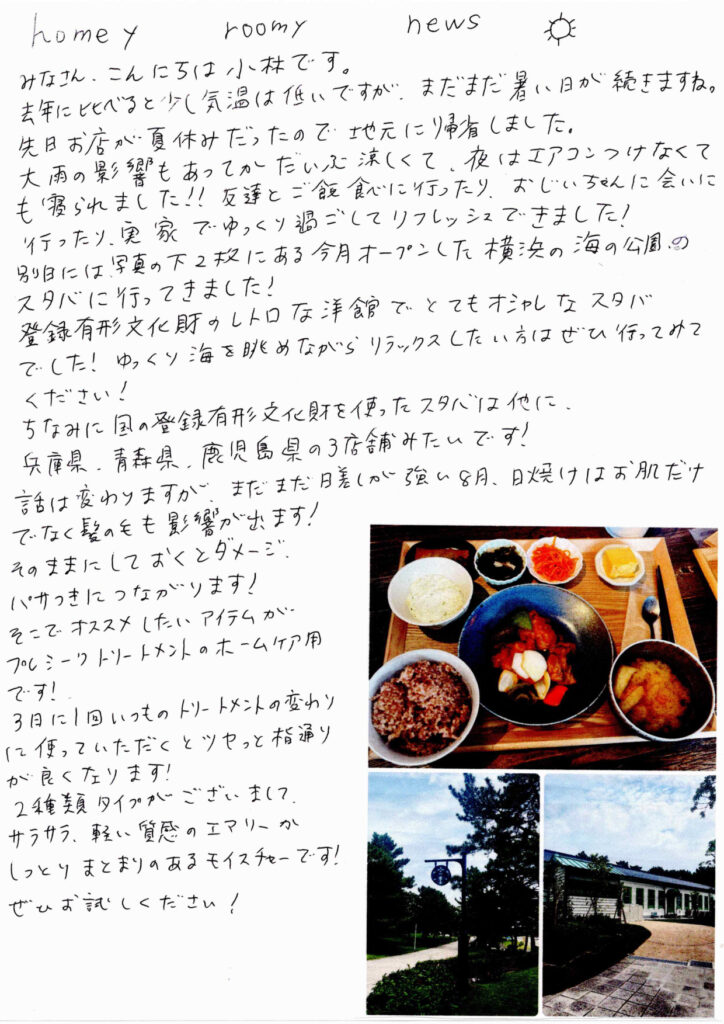 homey roomy news
みなさん、こんにちは小林です。
去年に比べると少し気温は低いですが、まだまだ暑い日が続きますね。
先日お店が夏休みだったので地元に帰省しました。
大雨の影響もあってかだいぶ涼しくて、夜はエアコンつけなくて
も寝られました!! 友達とご飯食べに行ったり、おじいちゃんに会いに
行ったり、実家でゆっくり過ごしてリフレッシュできました!
別日には、写真の下2枚にある今月オープンした横浜の海の公園の
スタバに行ってきました!
登録有形文化財のレトロな洋館でとてもオシャレなスタバ
でした! ゆっくり海を眺めながらリラックスしたい方はぜひ行ってみて
ください!
ちなみに国の登録有形文化財を使ったスタバは他に、
兵庫県、青森県、鹿児島県の3店舗みたいです!
話は変わりますが、まだまだ日差しが強い8月、日焼けはお肌だけ
でなく髪の毛も影響が出ます!
そのままにしておくとダメージ、
パサつきにつながります!
そこでオススメしたいアイテムが
プレミーワトリートメントのホームケア用
です!
3日に1回いつものトリートメントの変わり
に使っていただくとツヤっと指通り
が良くなります!
2種類タイプがございまして、
サラサラ、軽い質感のエアリーか
しっとりまとまりのあるモイスチャーです!
ぜひお試しください!